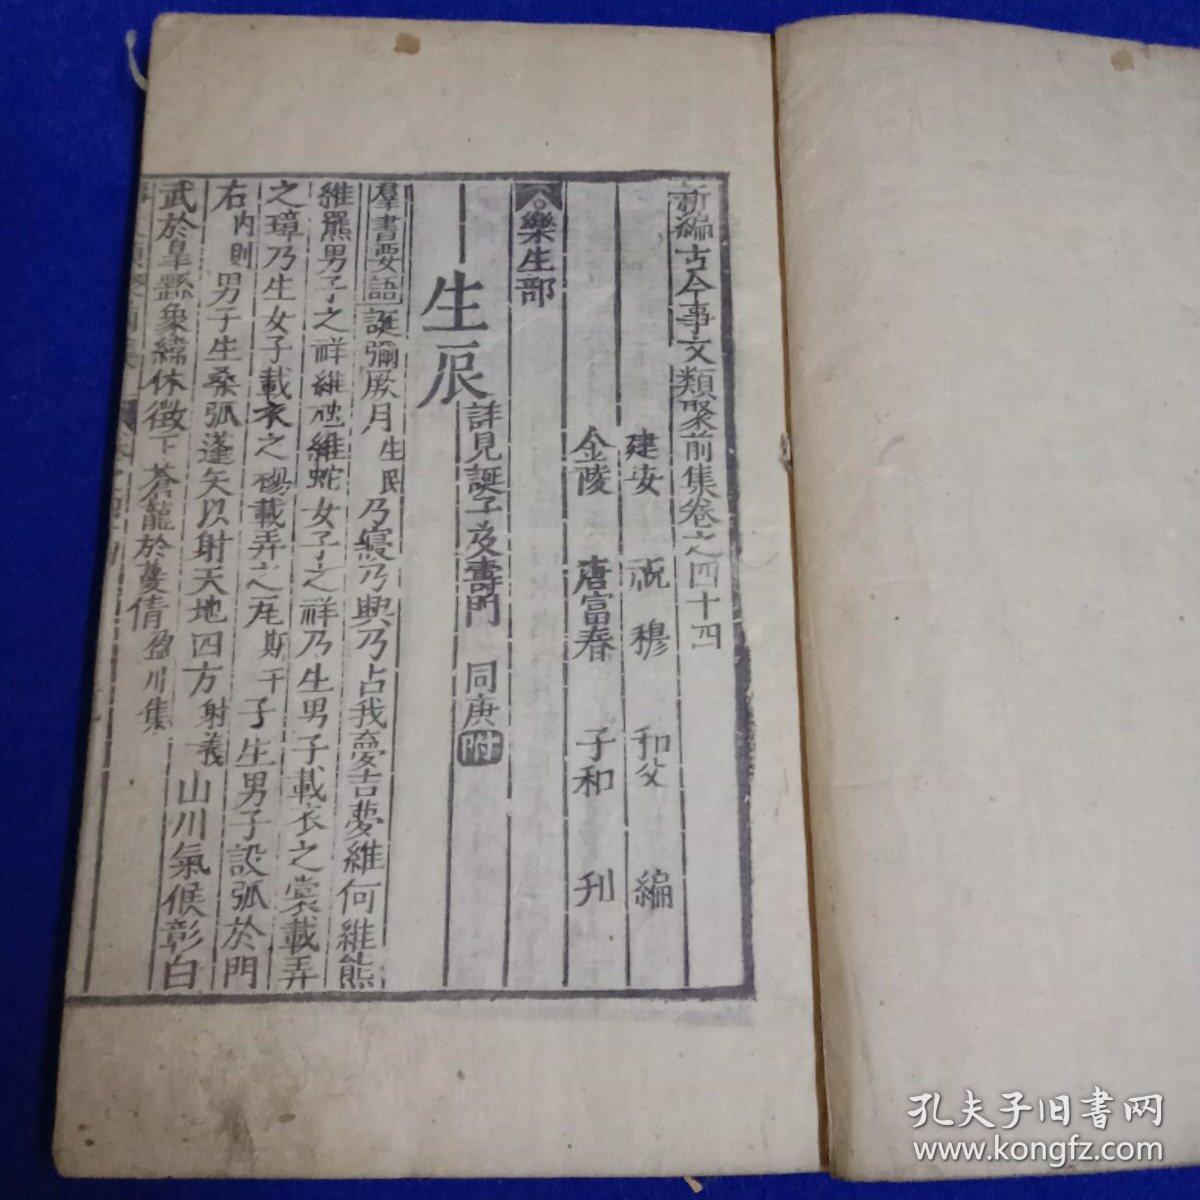 新編古今事文類聚前集卷之四十四
建安 祝穆 和父 編
金陵 唐富春 子和 刊
樂生部
生辰 詳見誕子及壽門 同庚附
羣書要語 誕彌厥月 生民 乃寢乃興乃占我夢吉夢維何維熊
維羆男子之祥維虺維蛇女子之祥乃生男子載衣之裳載弄
之璋乃生女子載衣之裼載弄之瓦 斯干 子生男子設弧於門
右 內則 男子生桑弧蓬矢以射天地四方 射義 山川氣候彰白
武於皐繇象緯休徵下蒼龍於蔓倩 盈川集
孔夫子旧书网
www.kongfz.com